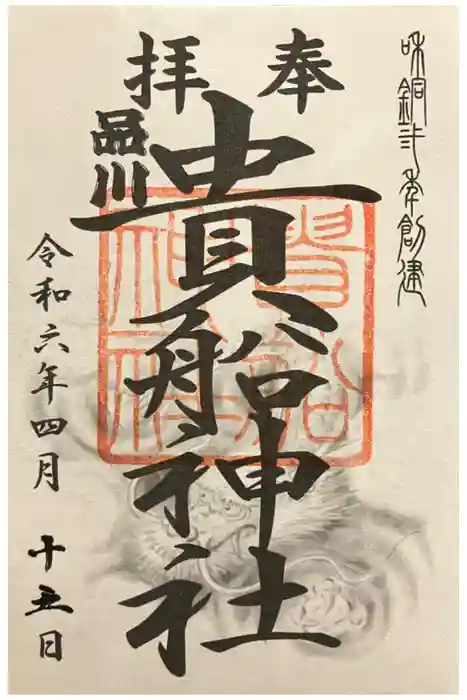 和銅弐年創建
奉拝
品川
貴船神社
貴船
神社
令和六年四月 十五日